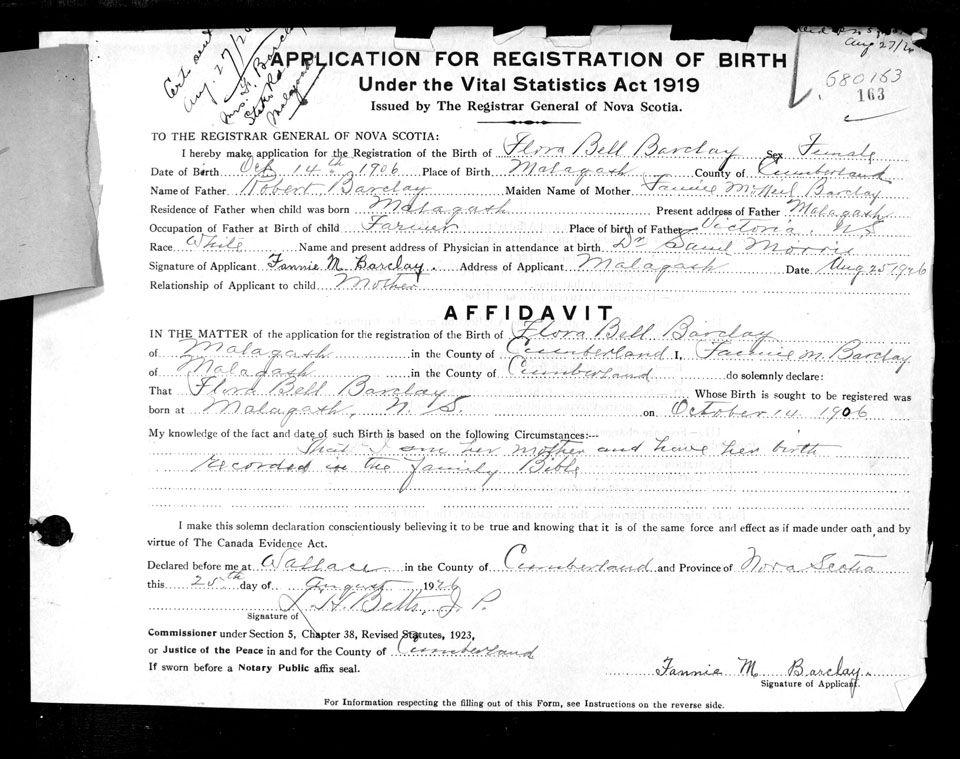 Cert sent
Aug 27/26
Mrs. F. Barclay
Malagash
Aug 27/26
680163
163
APPLICATION FOR REGISTRATION OF BIRTH
Under the Vital Statistics Act 1919
Issued by The Registrar General of Nova Scotia.
TO THE REGISTRAR GENERAL OF NOVA SCOTIA:
I hereby make application for the Registration of the Birth of Flora Bell Barclay Sex Female
Date of Birth Oct 14th 1906 Place of Birth Malagash County of Cumberland
Name of Father Robert Barclay Maiden Name of Mother Fannie McNeil Barclay
Residence of Father when child was born Malagash Present address of Father Malagash
Occupation of Father at Birth of child Farmer Place of birth of Father Victoria, N.S.
Race White Name and present address of Physician in attendance at birth Dr Saml Morris
Signature of Applicant Fannie M. Barclay. Address of Applicant Malagash Date Aug 25 1926
Relationship of Applicant to child Mother
AFFIDAVIT
IN THE MATTER of the application for the registration of the Birth of Flora Bell Barclay
of Malagash in the County of Cumberland I, Fannie M. Barclay
of Malagash in the County of Cumberland do solemnly declare:
That Flora Bell Barclay Whose Birth is sought to be registered was
born at Malagash, N. S. on October 14 1906
My knowledge of the fact and date of such Birth is based on the following Circumstances:--
That I am her mother and have her birth
recorded in the family Bible
I make this solemn declaration conscientiously believing it to be true and knowing that it is of the same force and effect as if made under oath, and by
virtue of The Canada Evidence Act.
Declared before me at Wallace in the County of Cumberland and Province of Nova Scotia
this 25th day of August 1926
L. H. Betts, J. P.
Signature of
Commissioner under Section 5, Chapter 38, Revised Statutes, 1923,
or Justice of the Peace in and for the County of Cumberland
If sworn before a Notary Public affix seal.
Fannie M Barclay.
Signature of Applicant.
For Information respecting the filling out of this Form, see Instructions on the reverse side.